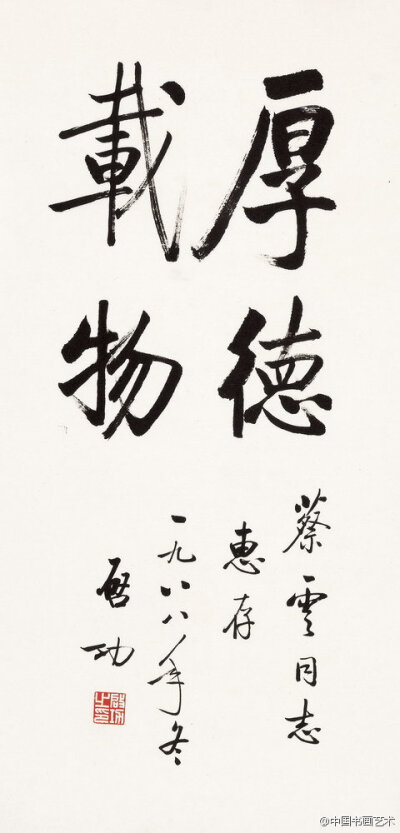 厚德
載物
蔡雲同志
惠存
一九八八年冬
啓功
啓功之印
@中国书画艺术